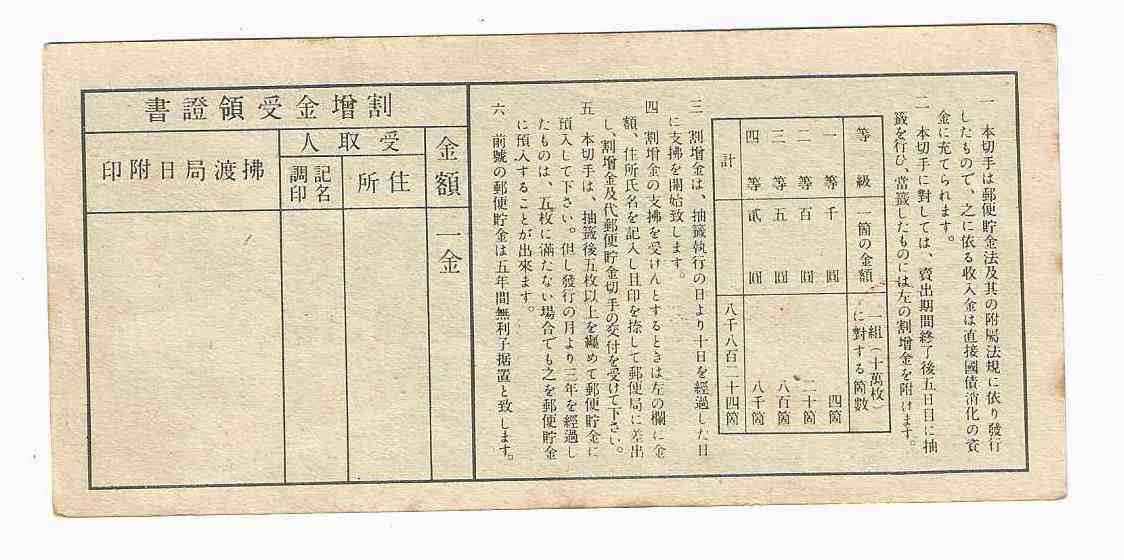 一 本切手は郵便貯金法及其の附屬法規に依り發行
したもので、之に依る收入金は直接國債消化の資
金に充てられます。
二 本切手に對しては、賣出期間終了後五日目に抽
籤を行ひ、當籤したものには左の割增金を附けます。
等級 一箇の金額 一組(十萬枚)に對する箇數
一等 千圓 四箇
二等 百圓 二十箇
三等 五圓 八百箇
四等 貳圓 八千箇
計 八千八百二十四箇
三 割增金は、抽籤執行の日より十日を經過した日
に支拂を開始致します。
四 割增金の支拂を受けんとするときは左の欄に金
額、住所氏名を記入し且印を捺して郵便局に差出
し、割增金及代郵便貯金切手の交付を受けて下さい。
五 本切手は、抽籤後五枚以上を纏めて郵便貯金に
預入して下さい。但し發行の月より三年を經過し
たものは、五枚に滿たない場合でも之を郵便貯金
に預入することが出來ます。
六 前號の郵便貯金は五年間無利子据置と致します。
書證領受金增割
金額
一金
人取受
所住
記名
調印
印附日局渡拂